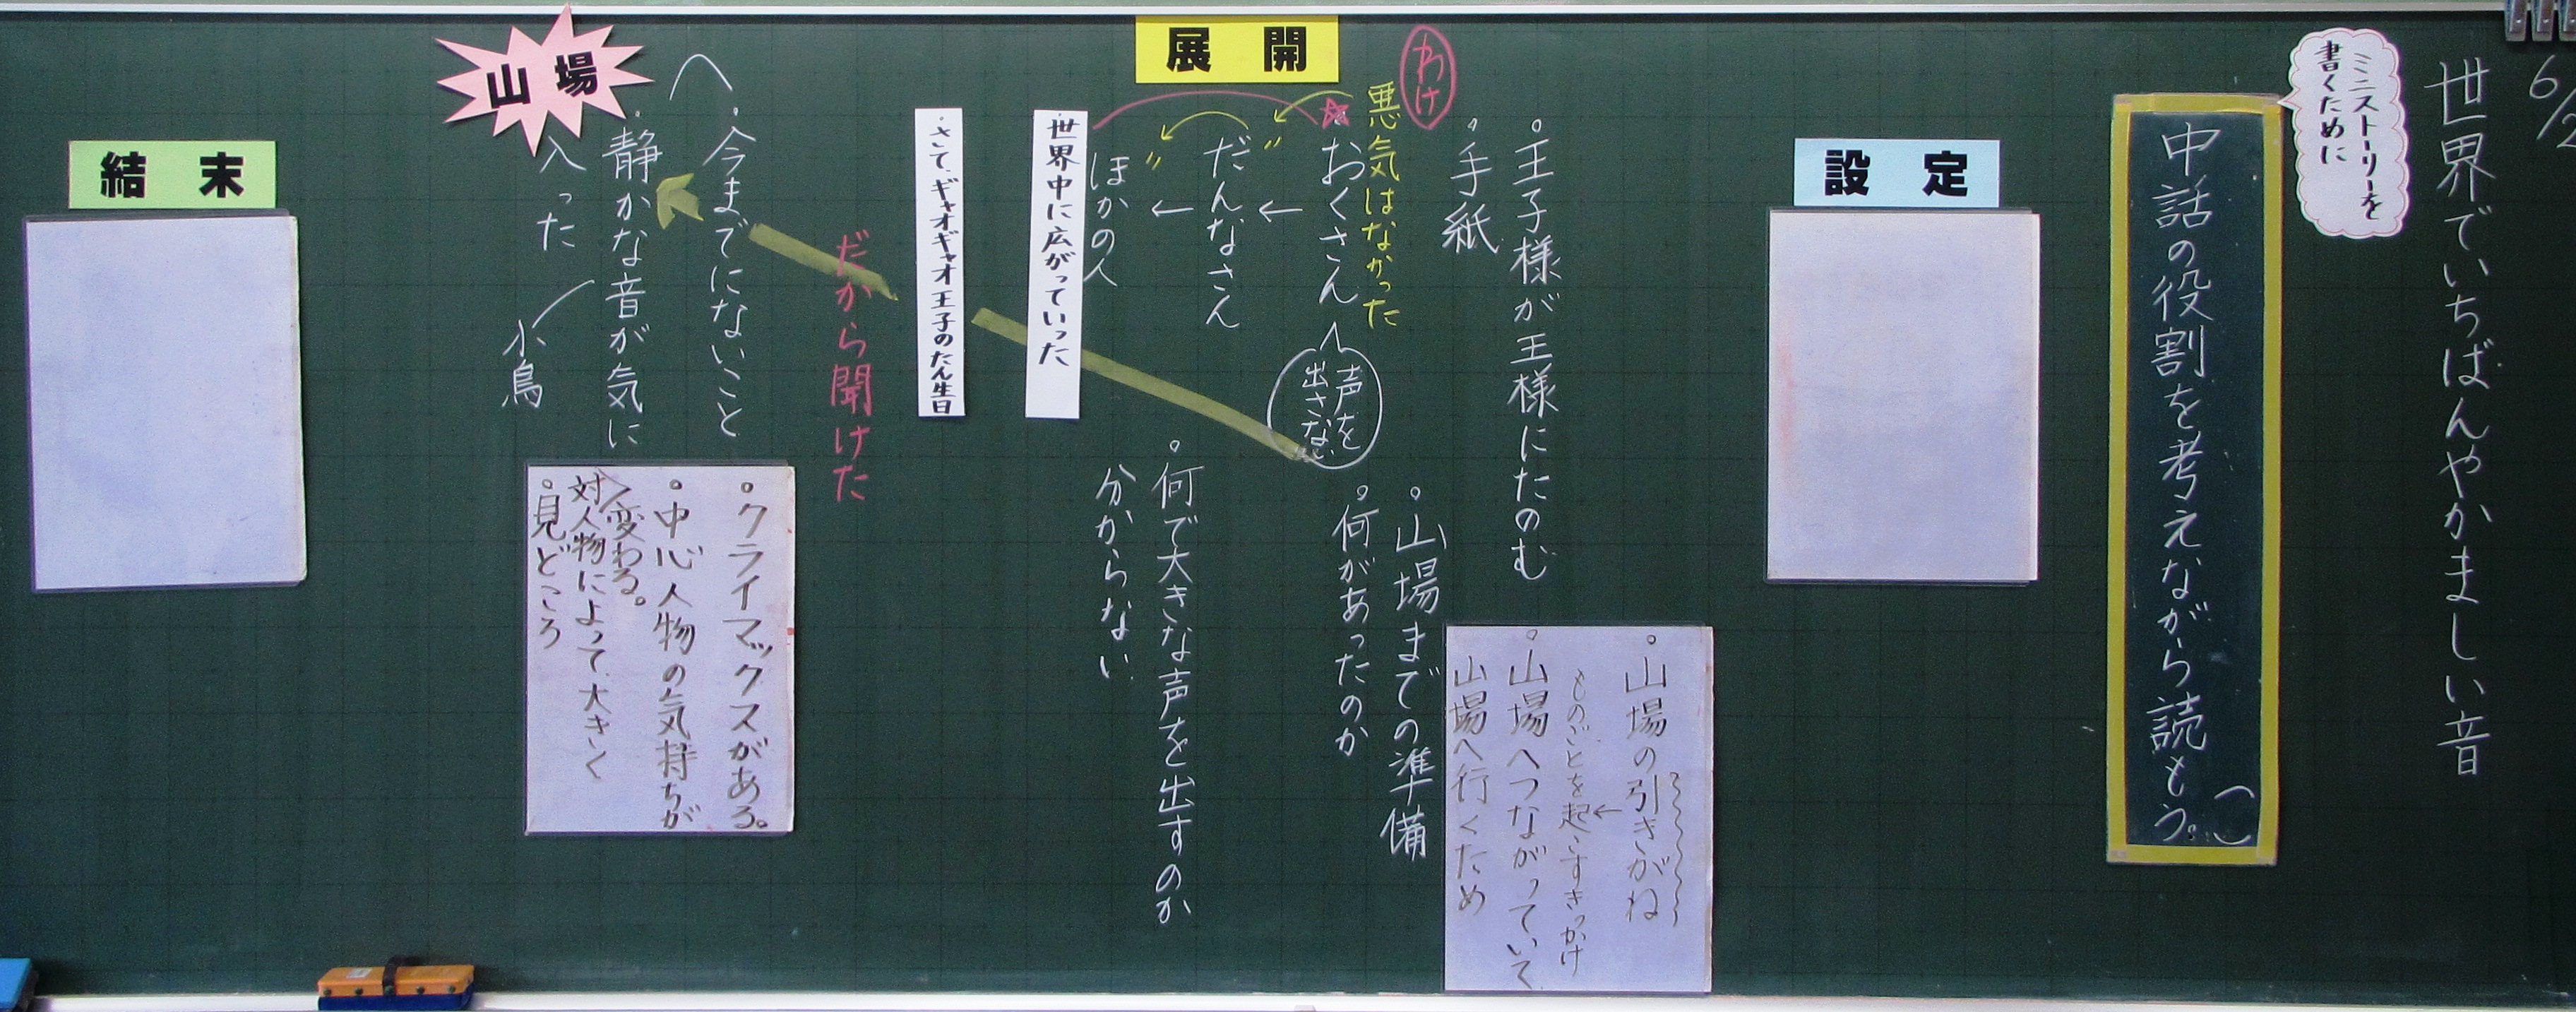 世界でいちばんやかましい音
ミニストーリーを
書くために
中話の役割を考えながら読もう。
設定
・山場の引きがね
ものごとを起こすきっかけ
・山場へつながっていて
山場へ行くため
展開
・王子様が王様にたのむ
・手紙
わけ
悪気はなかった
おくさん
声を
出さない
だんなさん
ほかの人
・山場までの準備
・何があったのか
・何で大きな声を出すのか
分からない
・世界中に広がっていった
・さて、ギャオギャオ王子のたん生日
だから聞けた
山場
・今までにないこと
・静かな音が気に
入った
小鳥
・クライマックスがある。
・中心人物の気持ちが
変わる。
対人物によって、大きく
・見どころ
結末